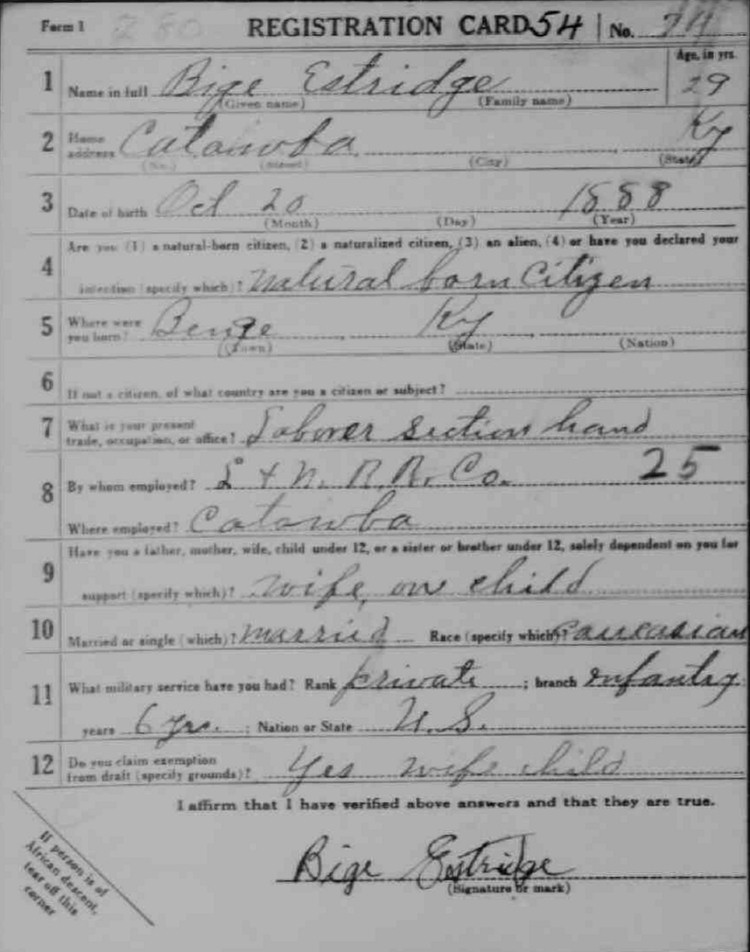 Form 1 280 REGISTRATION CARD 54 No. 74
Age, in yrs.
1 Name in full Bige Estridge 29
(Given name) (Family name)
2 Home address Catawba Ky
(No.) (Street) (City) (State)
3 Date of birth Oct 20 1888
(Month) (Day) (Year)
4 Are you (1) a natural-born citizen, (2) a naturalized citizen, (3) an alien, (4) or have you declared your
intention (specify which)? natural born Citizen
5 Where were you born? Benge Ky
(Town) (State) (Nation)
6 If not a citizen, of what country are you a citizen or subject?
7 What is your present trade, occupation, or office? Laborer section hand
8 By whom employed? L + N. R.R. Co. 25
Where employed? Catawba
9 Have you a father, mother, wife, child under 12, or a sister or brother under 12, solely dependent on you for
support (specify which)? wife, on child
10 Married or single (which)? married Race (specify which)? caucasian
11 What military service have you had? Rank private ; branch infantry
years 6 yrs. ; Nation or State U.S.
12 Do you claim exemption from draft (specify grounds)? Yes wife child
I affirm that I have verified above answers and that they are true.
Bige Estridge
(Signature or mark)
If person is of
African descent,
tear off this
corner